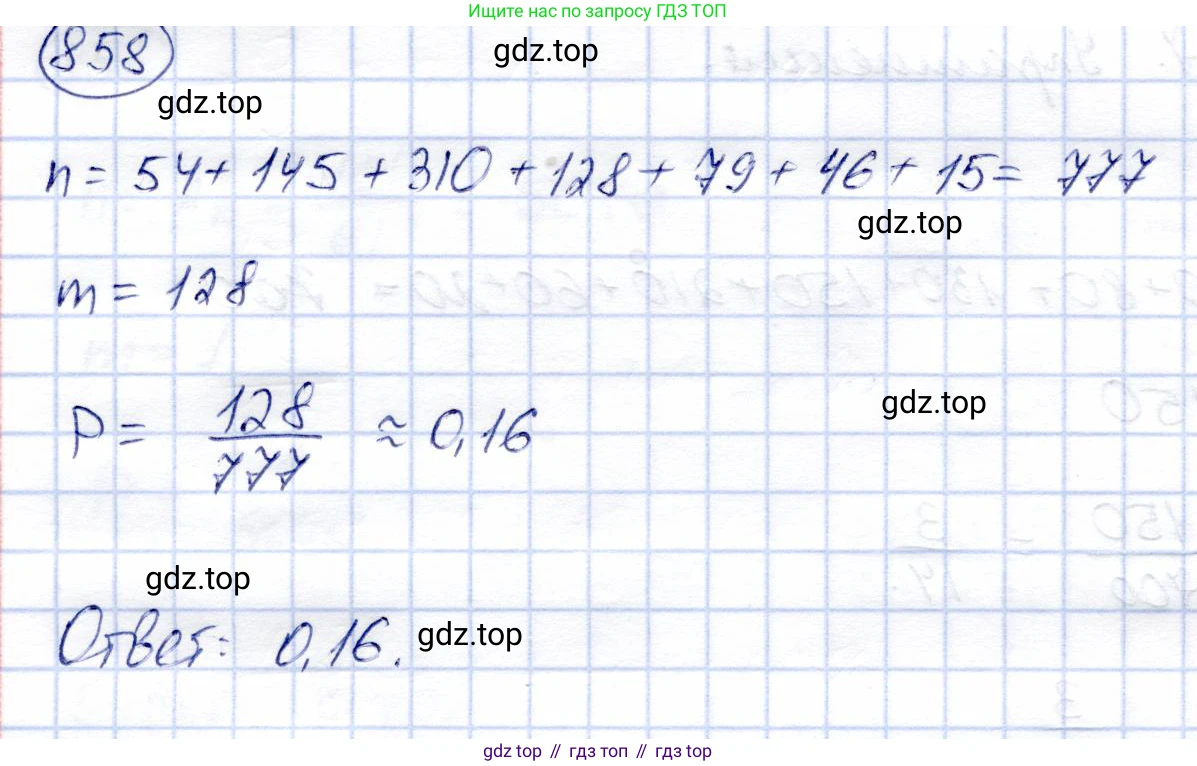 Ищите нас по запросу ГДЗ ТОП
858
gdz.top
gdz.top
n = 54 + 145 + 310 + 128 + 79 + 46 + 15 = 777
gdz.top
m = 128
gdz.top
P = 128/777 ≈ 0,16
gdz.top
Ответ: 0,16.
gdz.top
gdz top // гдз топ // гдз top